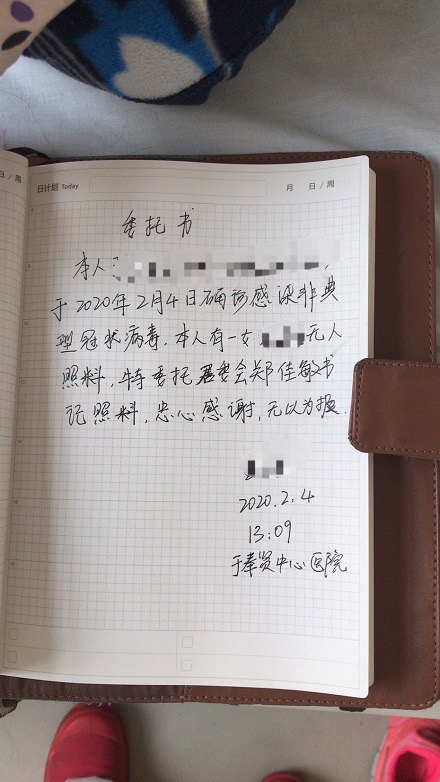 日/周
日计划 Today 月 日/周
委托书
本人:
于2020年2月4日确诊感染非典
型冠状病毒.本人有一女 无人
照料,特委托居委会郑佳敏书
记照料,忠心感谢,无以为报.
2020.2.4
13:09
于奉贤中心医院